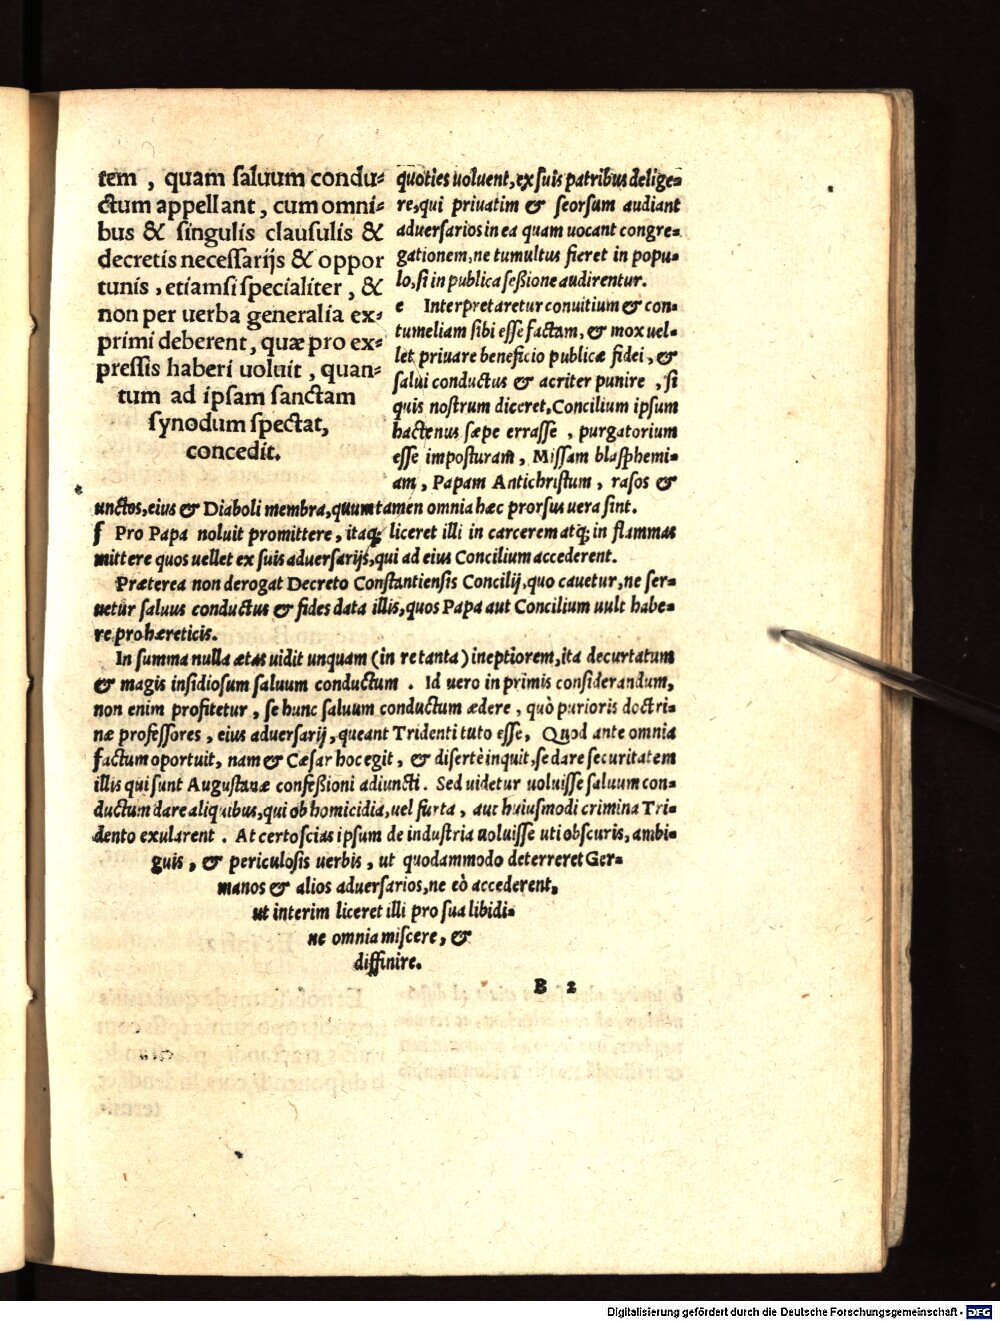 tem , quam saluum condu⸗
ctum appellant , cum omni⸗
bus & singulis clausulis &
decretis necessarijs & oppor
tunis , etiamsi specialiter , &
non per uerba generalia ex⸗
primi deberent, quæ pro ex⸗
pressis haberi uoluit , quan⸗
tum ad ipsam sanctam
synodum spectat,
concedit.
quoties uoluent, ex suis patribus delige⸗
re, qui priuatim & seorsum audiant
aduersarios in ea quam uocant congre⸗
gationem, ne tumultus fieret in popu⸗
lo, si in publica seßione audirentur.
e Interpretaretur conuitium & con⸗
tumeliam sibi esse factam, & mox uel⸗
let priuare beneficio publicæ fidei , &
salui conductus & acriter punire , si
quis nostrum diceret, Concilium ipsum
hactenus sæpe errasse , purgatorium
esse imposturam , Missam blasphemi⸗
am , Papam Antichristum , rasos &
unctos, eius & Diaboli membra, quum tamen omnia hæc prorsus uera sint.
f Pro Papa noluit promittere , itaq; liceret illi in carcerem atq; in flammas
mittere quos uellet ex suis aduersarijs, qui ad eius Concilium accederent.
Præterea non derogat Decreto Constantiensis Concilij, quo cauetur, ne ser⸗
uetur saluus conductus & fides data illis, quos Papa aut Concilium uult habe⸗
re pro hæreticis.
In summa nulla ætas uidit unquam (in re tanta) ineptiorem, ita decurtatum
& magis insidiosum saluum conductum . Id uero in primis considerandum,
non enim profitetur , se hunc saluum conductum ædere , quò purioris doctri⸗
næ professores , eius aduersarij , queant Tridenti tuto esse , Quod ante omnia
factum oportuit, nam & Cæsar hoc egit , & disertè inquit, se dare securitatem
illis qui sunt Augustanæ confeßioni adiuncti. Sed uidetur uoluisse saluum con⸗
ductum dare aliquibus, qui ob homicidia, uel furta , aut huiusmodi crimina Tri⸗
dento exularent . At certo scias ipsum de industria uoluisse uti obscuris, ambi⸗
guis , & periculosis uerbis , ut quodammodo deterreret Ger⸗
manos & alios aduersarios, ne eò accederent,
ut interim liceret illi pro sua libidi⸗
ne omnia miscere, &
diffinire.
B 2
Digitalisierung gefördert durch die Deutsche Forschungsgemeinschaft - DFG